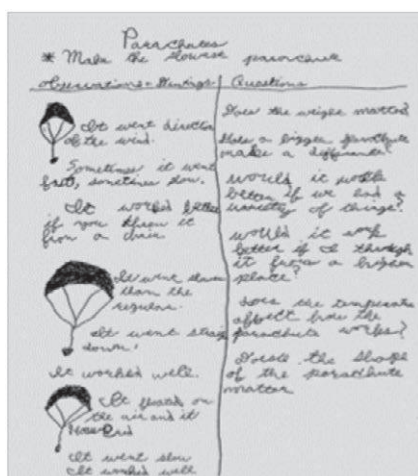 Parachutes
* Make the slowest parachute
Observations - Drawings
It went direction
of the wind.
Sometimes it went
fast, sometimes slow.
It worked better
if you throw it
from a chair
It went slower
than the
regular.
It went straig
down.
It worked well.
It floated on
the air and it
It went slow
It worked well
Questions
Does the weight matter
Does a bigger parachute
make a difference
Would it work
better if we had a
variety of things?
Would it work
better if I through
it from a higher
place?
Does the temperate
affect how the
parachute works?
Does the shape
of the parachute
matter